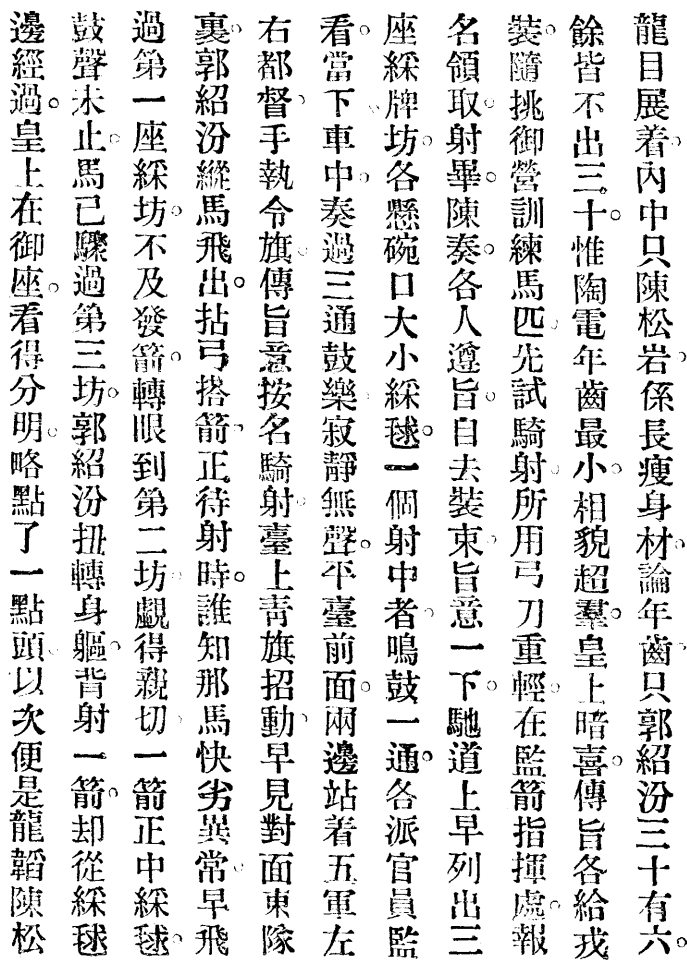 龍目展着內中只陳松岩係長瘦身材論年齒只郭紹汾三十有六。
餘皆不出三十。惟陶電年齒最小。相貌超羣。皇上暗喜。傳旨各給戎
裝。隨挑御營訓練馬匹先試騎射所用弓刀重輕。在監箭指揮處。報
名領取。射畢。陳奏。各人遵旨。自去裝束。旨意一下。馳道上早列出三
座綵牌坊。各懸碗口大小綵毬。一個射中者。鳴鼓一通。各派官員監
看。當下車中。奏過三通鼓樂寂靜無聲。平臺前面。兩邊站着五軍左
右都督。手執令旗。傳旨意按名騎射。臺上靑旗招動。早見對面東隊
裏。郭紹汾縱馬飛出。拈弓搭箭。正待射時。誰知那馬快劣異常。早飛
過第一座綵坊。不及發箭。轉眼到第二坊。覷得親切。一箭正中綵毬。
鼓聲未止。馬已驟過第三坊。郭紹汾扭轉身軀。背射一箭。却從綵毬
邊經過。皇上在御座。看得分明。略點了一點頭。以次便是龍韜陳松